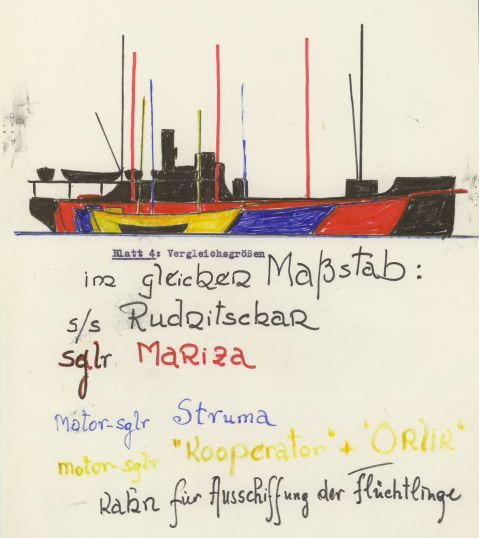 Blatt 4: Vergleichsgrößen
im gleichen Maßstab:
s/s Rudnitschar
sglr Mariza
Motor-sglr Struma
motor-sglr "Kooperator" + "Orlik"
Kahn für Ausschiffung der Flüchtlinge